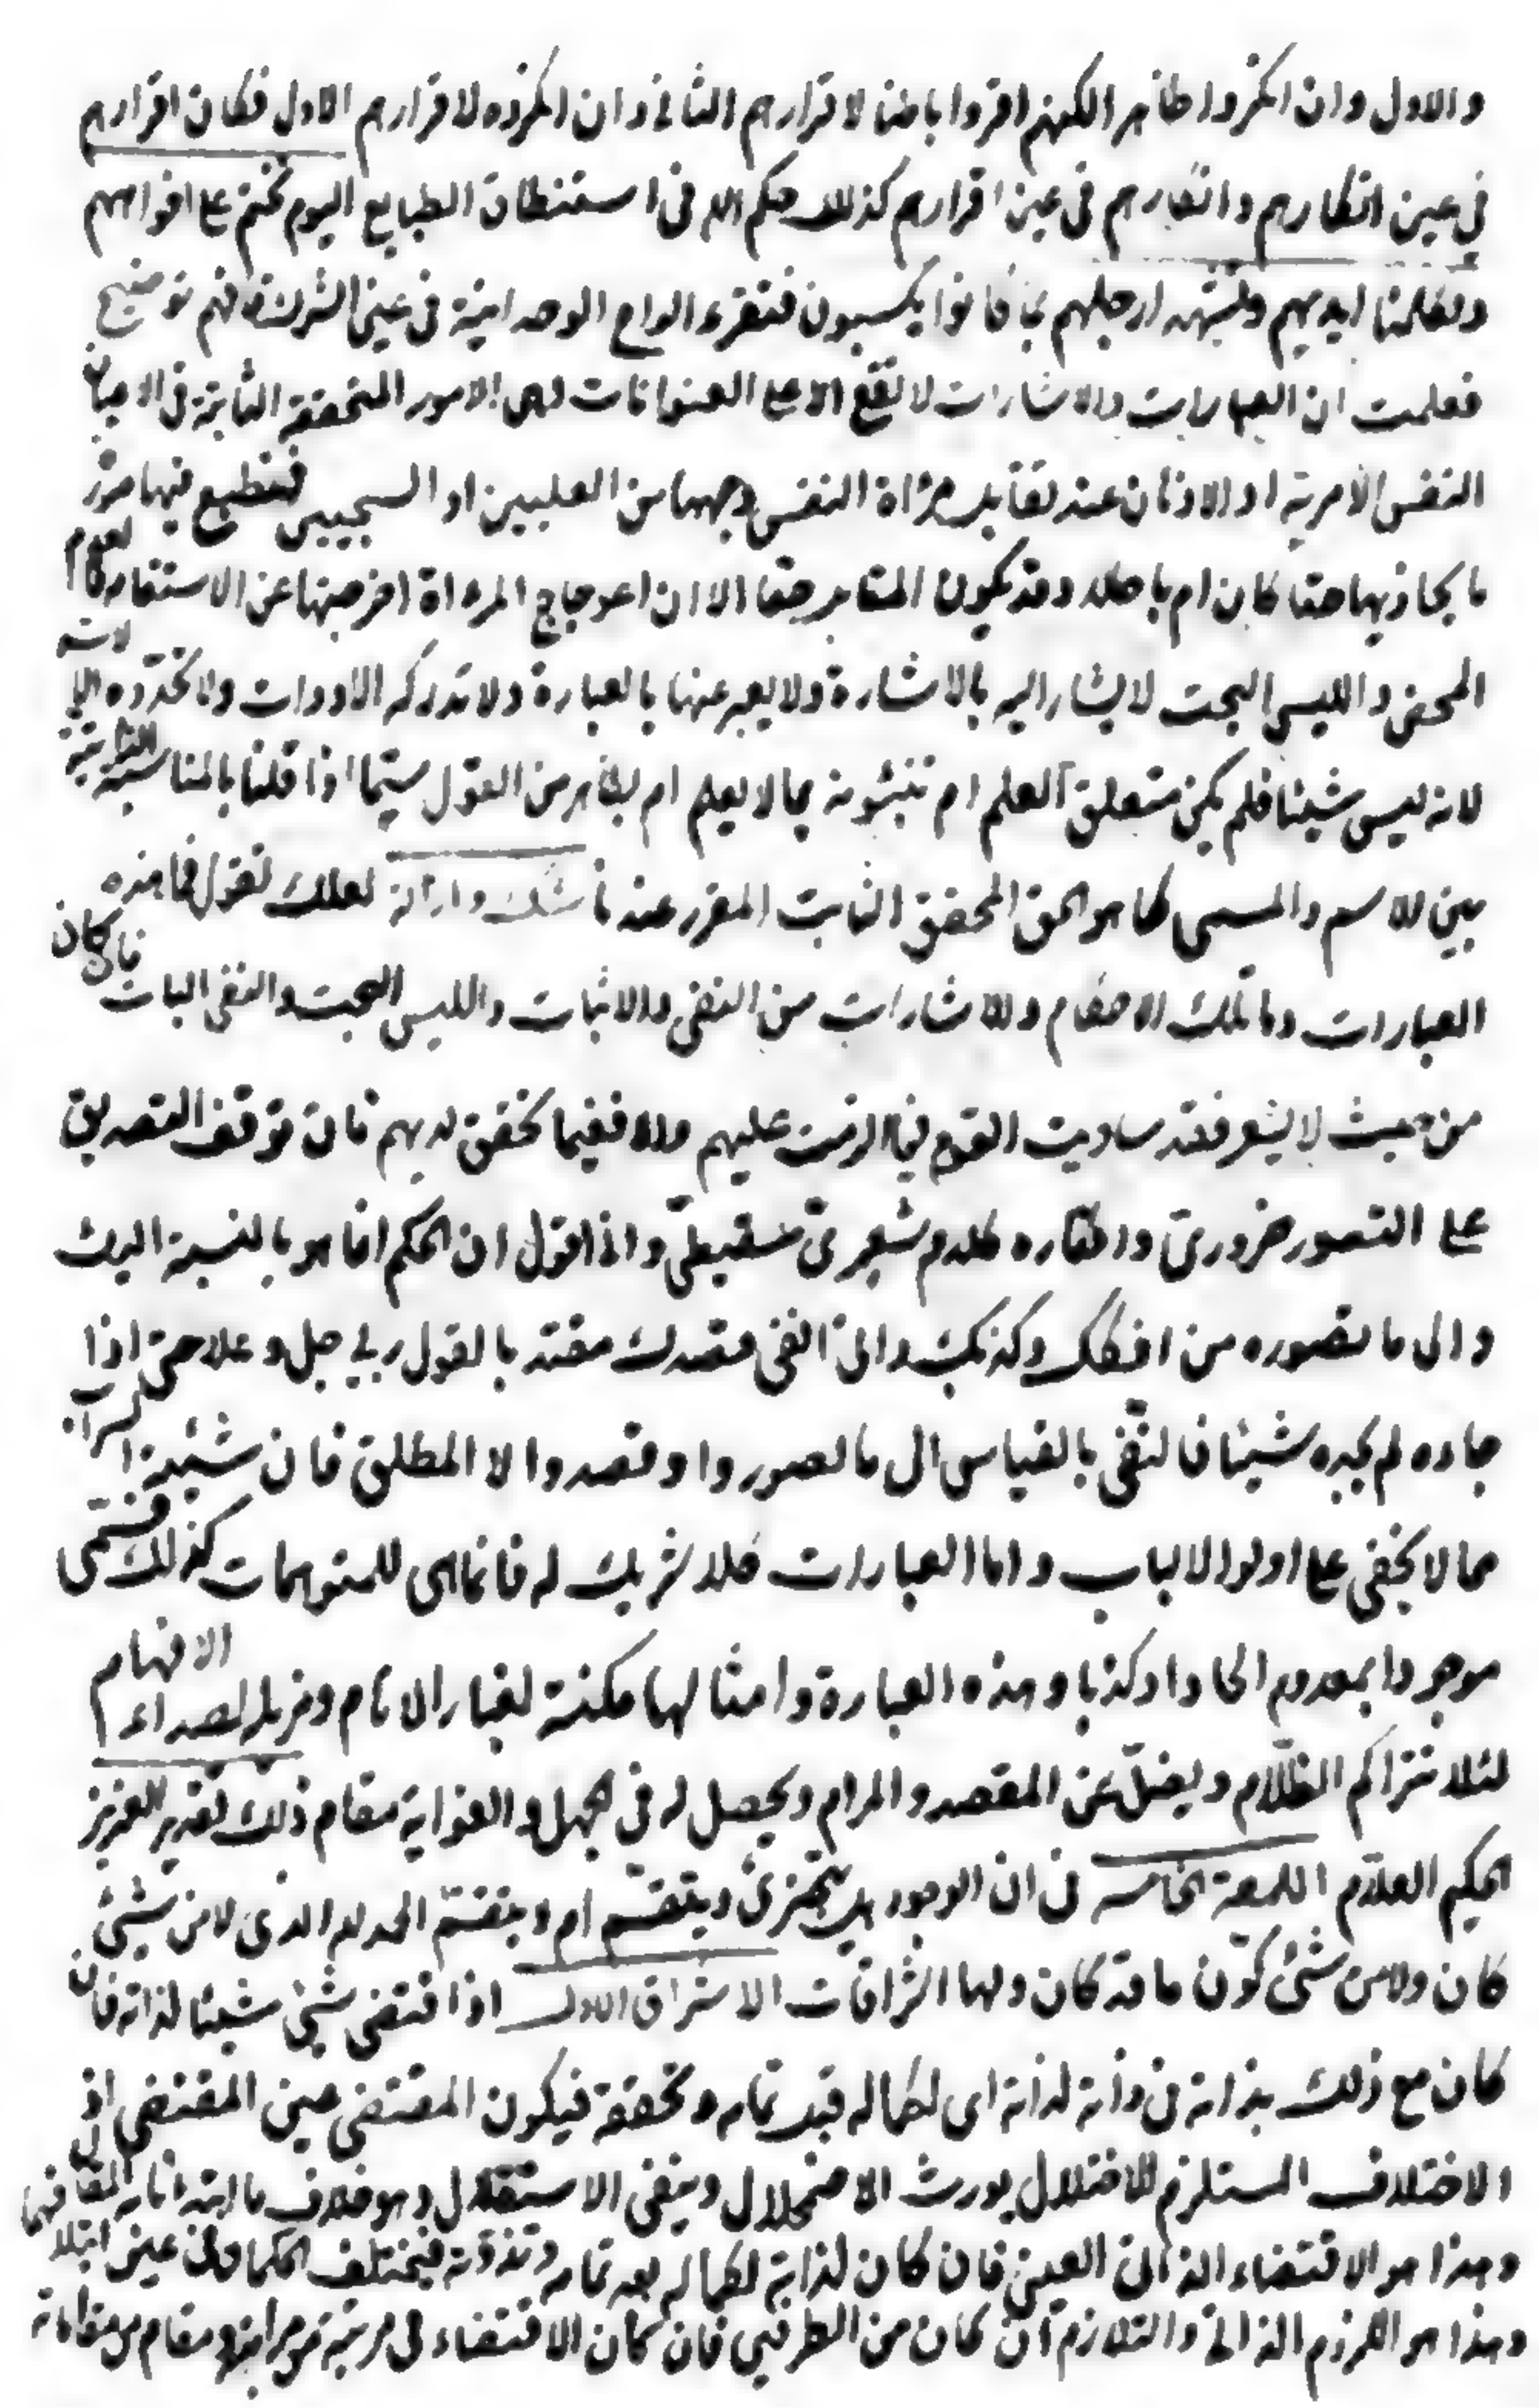 والاول وان انكروا ظاهرا لكنهم اقروا باطنا لاقرارهم الثاني وان انكروه لاقرارهم الاول فكان اقرارهم
في عين انكارهم وانكارهم في عين اقرارهم كذلك حكم الله في استنطاق الطبايع اليوم نختم على افواههم
وتكلمنا ايديهم وتشهد ارجلهم بما كانوا يكسبون فتقرء الواح الوحدانية في عين الشرك فافهم توضيح
فعلمت ان العبارات والاشارات لا تقع الا على العنوانات وهي الامور المتحققة الثابتة في الاعيان
النفس الأمرية او الاذهان عند تقابل مرآة النفس وجهها من العليين او السجيين فتنطبع فيها صور
ما يحاذيها حقا كان ام باطلا وقد يكون المقابل حقا الا ان اعوجاج المرءاة اخرجتها عن الاستقامة فالعدم
المحض والليس البحت لا يشار اليه بالاشارة ولا يعبر عنها بالعبارة ولا تدركه الادوات ولا تحدّده الالات
لانه ليس شيئا فلم يكن متعلق العلم ام تنبئونه بما لا يعلم ام بظاهر من القول سيّما اذا قلنا بالمناسبة الذاتية
بين الاسم والمسمى كما هو الحق المحقق الثابت المقرر عندنا شك وازالة لعلك تقول فما هذه
العبارات وما تلك الاحكام والاشارات من النفي والاثبات والليس البحت والنفي البات فان كان
من حيث لا يشعر فقد ساويت القوم فيما الزمت عليهم والا ففيما تحقق لديهم فان توقف التصديق
على التصور ضروريّ وانكاره كلام شعريّ سقيطيّ وانا اقول ان الحكم انما هو بالنسبة اليك
والى ما تصوره من افكك وكذبك والى النفي قصدك مقتد بالقول ربي جل وعلا حتى اذا
جاءه لم يجده شيئا فالنفي بالقياس الى ما تصوروا وقصدوا لا المطلق فان شيئية السراب
مما لا يخفى على اولوا الالباب واما العبارات فلا شريك له فانما هي للمتوهمات كذلك فتسمى
موجودا بمعدوم الحادا وكذبا وهذه العبارة وامثالها مكنسة لغبار الاوهام ومزيل لصداء الافهام
لئلا تتراكم الظلّام ويضلّ عن المقصد والمرام ويحصل له في الجهل والغواية مقام ذلك تقدير العزيز
الحكيم العلّام اللمعة الخامسة في ان الوجود هل يتجزئ ويتقسّم ام وينقسّم الحمد لله الذي لا من شيئ
كان ولا من شئ كوّن ما قد كان ولها اشراقات الاشراق الاول اذا اقتضى شيئ شيئا لذاته فان
كان مع ذلك بذاته في ذاته لذاته اي لكماله قبل تمامه وتحققه فيكون المقتضي عين المقتضى اذ
الاختلاف المستلزم للاختلال يورث الاضمحلال وينفي الاستقلال وهو خلاف ما ابتدانا به المقال
وهذا هو الاقتضاء الذاتي العيني فان كان لذاته لكماله بعد تمامه وتذوّته فيختلف الحكمان
وهذا هو اللزوم الذاتي والتلازم ان كان من الطرفين فان كان الاقتضاء في مرتبة من مراتبه ومقام من مقاماته